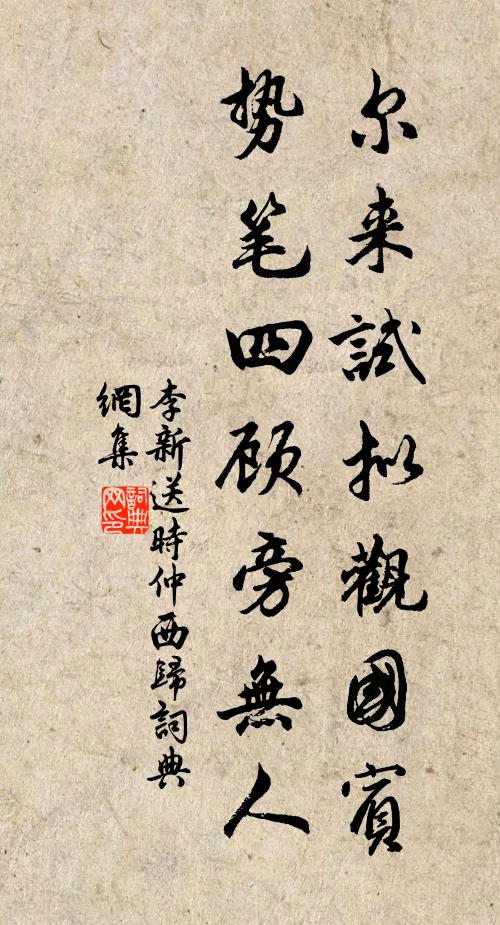 尔来試拟觀國賓
势笔四顾旁無人
李新送時仲西歸詞典
網集
詞典
网印